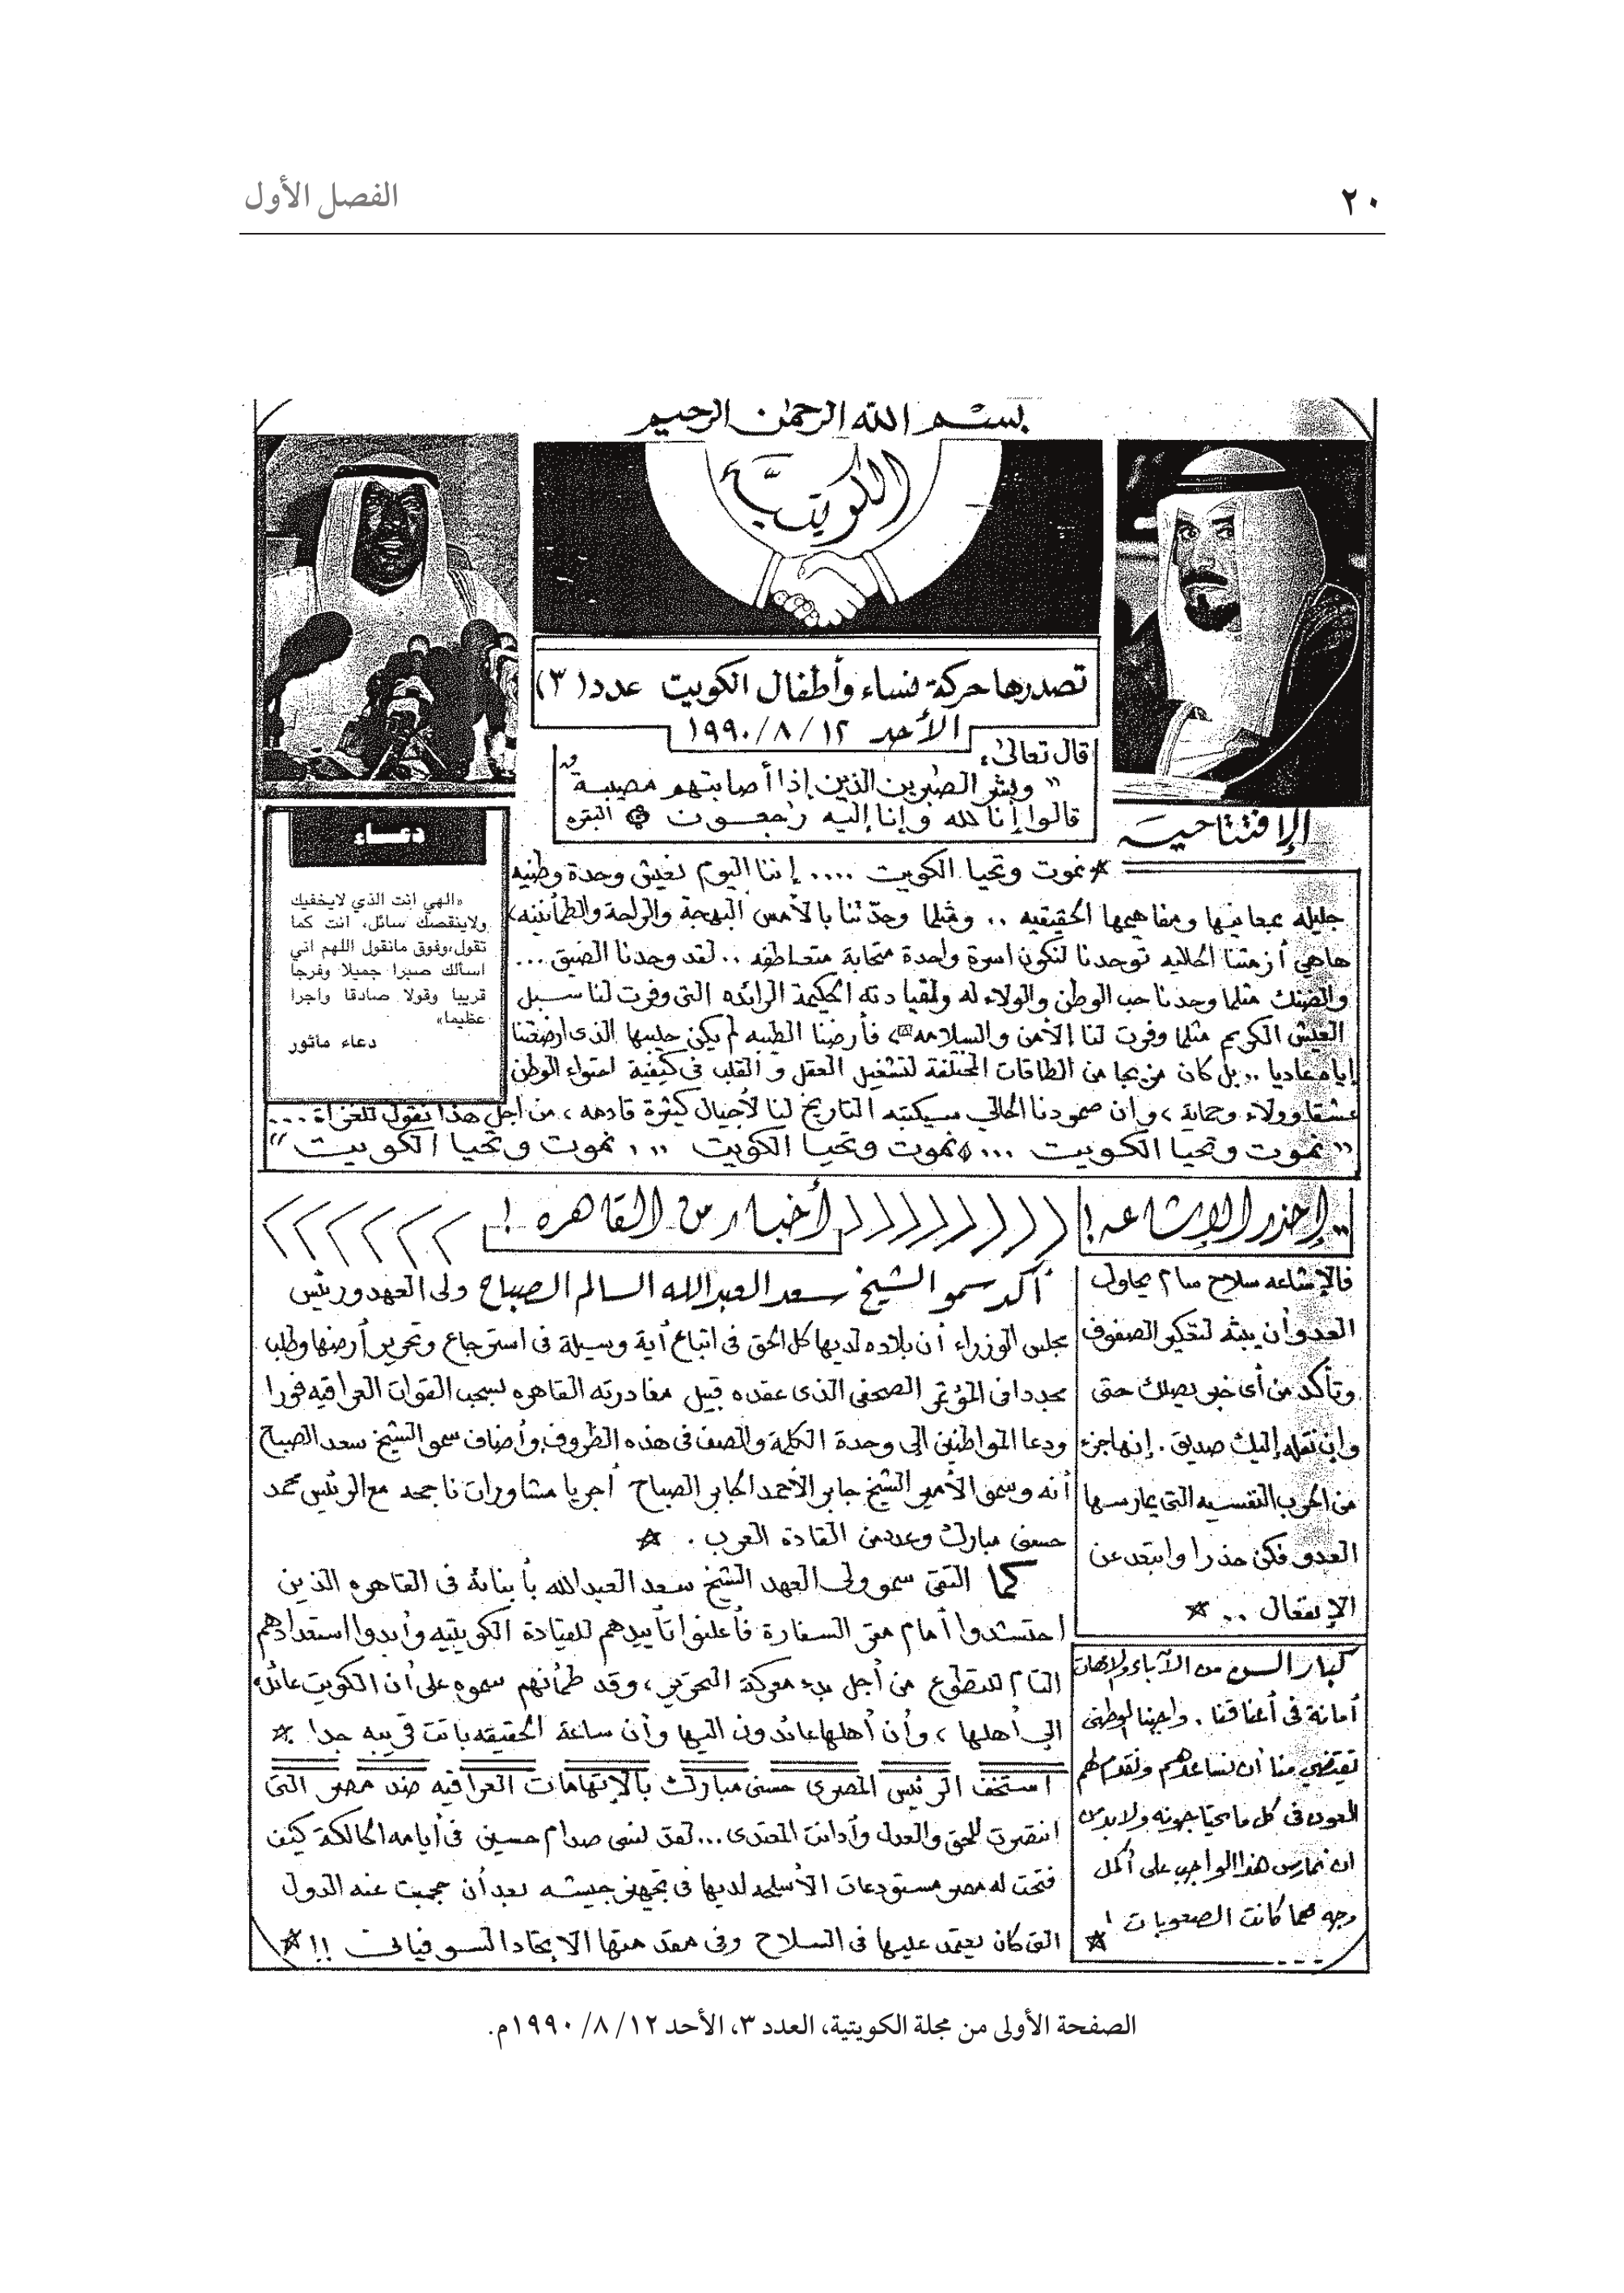 ٢٠
الفصل الأول
بسم الله الرحمن الرحيم
الكويتية
تصدرها حركة نساء وأطفال الكويت عدد (٣)
الأحد ١٢/٨/١٩٩٠
قال تعالى:
" وبشر الصبرين الذين إذا أصابتهم مصيبة
قالوا إنا لله وإنا إليه رجعون البقره
دعاء
«الهي انت الذي لايخفيك
ولاينقصك سائل، انت كما
تقول،وفوق مانقول اللهم اني
اسالك صبرا جميلا وفرجا
قريبا وقولا صادقا واجرا
عظيما»
دعاء ماثور
الإفتتاحية
نموت وتحيا الكويت .... إننا اليوم نعيش وحدة وطنيه
جليله بمعانيها ومفاهيمها الحقيقيه .. ومثلما وحدتنا بالأمس البهجة والراحة والطمأنينه
هاهي أزمتنا الحاليه توحدنا لنكون اسرة واحدة متحابة متعاطفه .. لقد وحدنا الضيق ...
والضنك مثلما وحدنا حب الوطن والولاء له ولقيادته الحكيمة الرائده التى وفرت لنا سبل
العيش الكريم مثلما وفرت لنا الأمن والسلامه فأرضنا الطيبه لم يكن حليبها الذى ارضعتنا
إياه عاديا .. بل كان مزيجا من الطاقات المختلفة لتشغيل العقل والقلب فى كيفية احتواء الوطن
عشقا وولاء وحماية ، وان صمودنا الحالي سيكتبه التاريخ لنا لأجيال كثيرة قادمه ، من اجل هذا نقول للغزاة ...
"نموت وتحيا الكويت ... نموت وتحيا الكويت ... نموت وتحيا الكويت"
.. إحذر الإشاعه !
فالإشاعه سلاح سام يحاول
العدو أن يبثه لتعكير الصفوف
وتأكد من أى خبر يصلك حتى
وإن نقله إليك صديق . إنها جزء
من الحرب النفسيه التى يمارسها
العدو فكن حذرا وابتعد عن
الإنفعال ..
كبار السن من الآباء والامهات
أمانة فى أعناقنا . واجبنا الوطنى
تقتضي منا أن نساعدهم ونقدم لهم
العون فى كل ما يحتاجونه ولابد من
ان نمارس هذا الواجب على أكمل
وجه مهما كانت الصعوبات !
أخبار من القاهره !
أكد سمو الشيخ سعد العبدالله السالم الصباح ولى العهد ورئيس
مجلس الوزراء أن بلاده لديها كل الحق فى اتباع أية وسيلة فى استرجاع وتحرير أرضها وطلب
مجددا فى المؤتمر الصحفى الذى عقده قبيل مغادرته القاهره بسحب القوات العراقيه فورا
ودعا المواطنين الى وحدة الكلمة والصف فى هذه الظروف وأضاف سمو الشيخ سعد الصباح
أنه وسمو الأمير الشيخ جابر الأحمد الجابر الصباح أجريا مشاورات ناجحه مع الرئيس محمد
حسنى مبارك وعدد من القادة العرب .
كما التقى سمو ولى العهد الشيخ سعد العبدالله بأبنائه فى القاهره الذين
احتشدوا أمام مقر السفارة فأعلنوا تأييدهم للقيادة الكويتيه وأبدوا استعدادهم
التام للتطوع من أجل بدء معركة التحرير ، وقد طمأنهم سموه على أن الكويت عائده
إلى أهلها ، وأن أهلها عائدون اليها وأن ساعة الحقيقه باتت قريبه جدا
استخف الرئيس المصرى حسنى مبارك بالإتهامات العراقيه ضد مصر التى
انتصرت للحق والعدل وأدانت المعتدى... لقد نسى صدام حسين فى أيامه الحالكة كيف
فتحت له مصر مستودعات الأسلحه لديها فى تجهيز جيشه بعد أن حجبت عنه الدول
التى كان يعتمد عليها فى السلاح وفى مقدمتها الاتحاد السوفياتى !!
الصفحة الأولى من مجلة الكويتية، العدد ٣، الأحد ١٢/ ٨/ ١٩٩٠م.